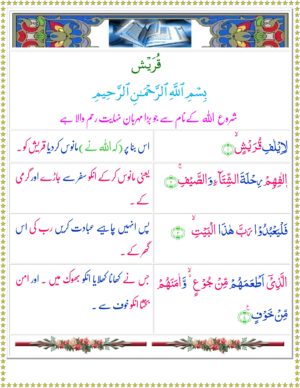 قُرَيْش
بِسْمِ اللّٰهِ الرَّحْمٰنِ الرَّحِيْمِ
شروع اللہ کے نام سے جو بڑا مہربان نہایت رحم والا ہے
لِاِيْلٰفِ قُرَيْشٍۙ ﴿۱﴾
اس بنا پر (کہ اللہ نے) مانوس کر دیا قریش کو ۔
اٖلٰفِهِمْ رِحْلَةَ الشِّتَآءِ وَالصَّيْفِۚ ﴿۲﴾
یعنی مانوس کر کے انکو سفر سے جاڑے اور گرمی
کے ۔
فَلْيَعْبُدُوْا رَبَّ هٰذَا الْبَيْتِۙ ﴿۳﴾
پس انہیں چاہیے عبادت کریں رب کی اس
گھر کے ۔
الَّذِيْۤ اَطْعَمَهُمْ مِّنْ جُوْعٍ ۙ وَّاٰمَنَهُمْ
مِّنْ خَوْفٍ ﴿۴﴾
جس نے کھانا کھلایا انکو بھوک میں ۔ اور امن
بخشا انکو خوف سے ۔